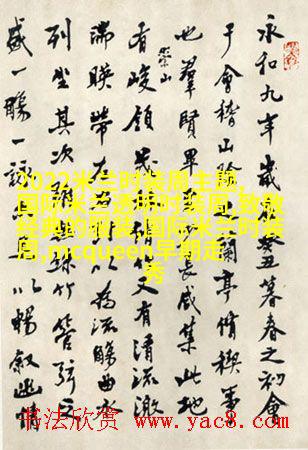 永和九年歲在癸丑暮春之初會
于會稽山陰之蘭亭脩稧事
也羣賢畢至少長咸集此地
有崇山峻領茂林脩竹又有清流激
湍暎帶左右引以為流觴曲水
列坐其次雖無絲竹管弦之
盛一觴一詠亦足以暢敘幽情
2022米兰时装周主题,
国际米兰透明时装周,致敬
经典的服装,国际米兰时装
周,mcqueen早期走
秀
书法欣赏 www.yac8.com